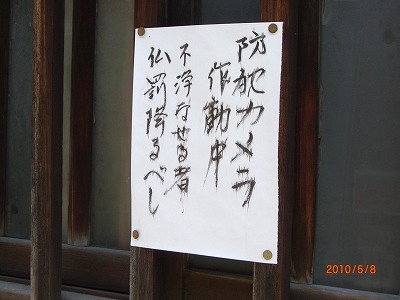 防犯カメラ
作動中
不浄なせる者
仏罰降るべし
2010/5/8